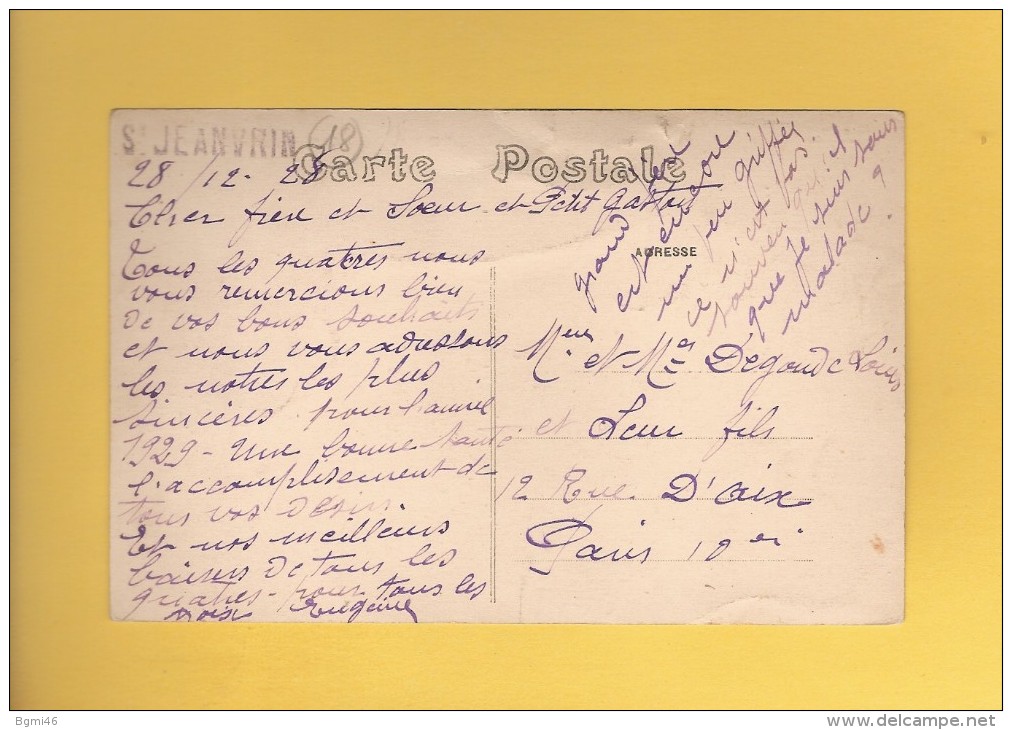 St JEANVRIN 18
Carte Postale
28/12-28
Cher frère et Soeur et Petit Gaston
Tous les quatres nous
vous remercions bien
de vos bons souhaits
et nous vous adressons
les notres les plus
sincères pour l'année
1929 - une bonne santé
l'accomplissement de
tous vos désirs.
Et nos meilleurs
baisers de tous les
quatres - pour tous les
trois Eugénie
grand
est encore
un peu griffée
ce n'est pas.
souven qu'il
que je suis sous
malade ?
ADRESSE
Mme et Mr Degoude Louis
et Leur fils
12 Rue D'aix
Paris 10 ei
Bgmi46
www.delcampe.net